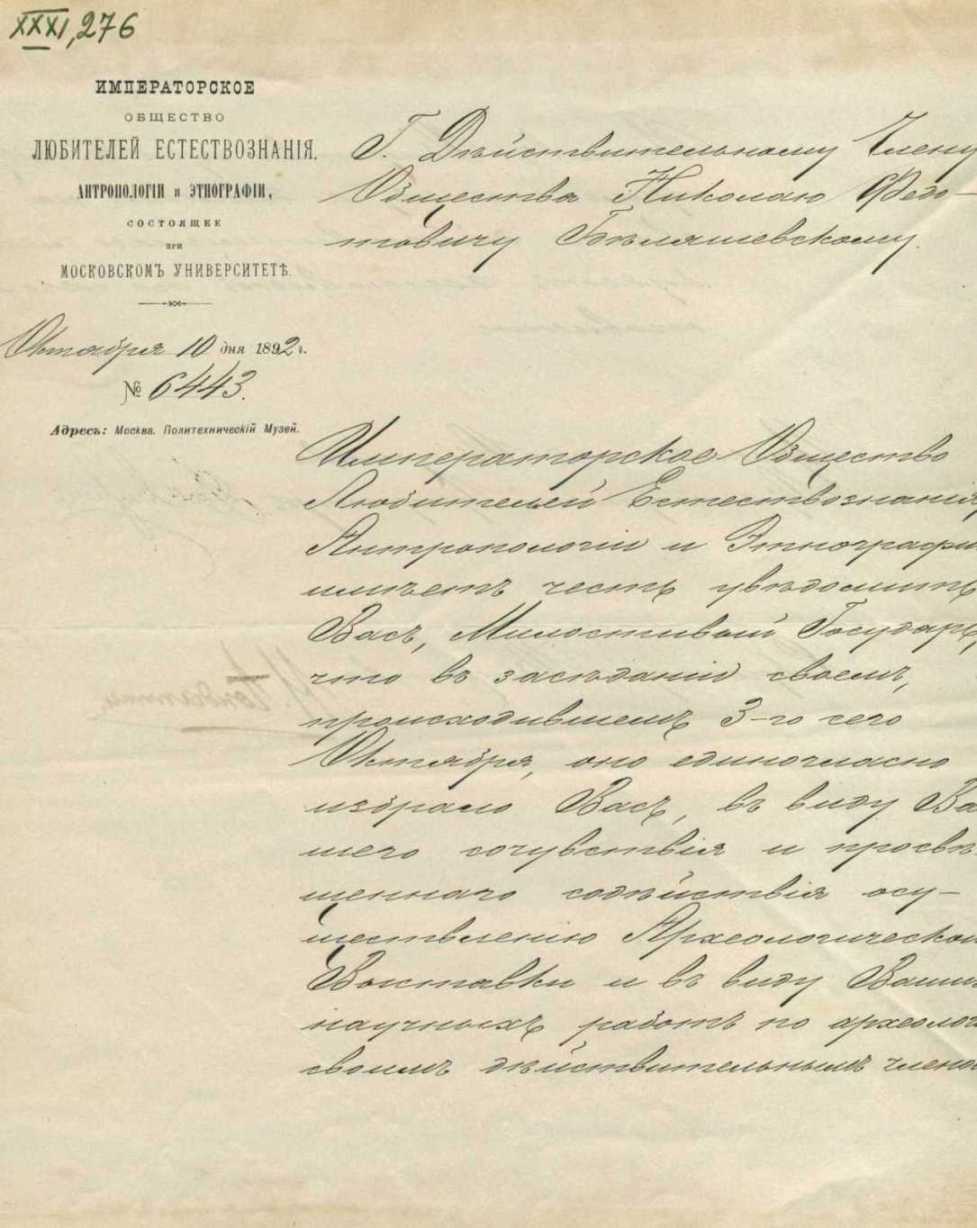 XXXI, 276
ИМПЕРАТОРСКОЕ
ОБЩЕСТВО
ЛЮБИТЕЛЕЙ ЕСТЕСТВОЗНАНІЯ,
АНТРОПОЛОГІИ и ЭТНОГРАФІИ,
СОСТОЯЩЕЕ
ПРИ
МОСКОВСКОМЪ УНИВЕРСИТЕТѢ.
Октября 10 дня 1892 г.
№ 6443.
Адресъ: Москва. Политехническій Музей.
Г. Дѣйствительному Члену
Общества Николаю Ѳедо-
товичу Бѣляшевскому.
Императорское Общество
Любителей Естествознанія,
Антропологіи и Этнографіи
имѣетъ честь увѣдомить
Васъ, Милостивый Государь,
что въ засѣданіи своемъ,
происходившемъ 3-го сего
Октября, оно единогласно
избрало Васъ, въ виду Ва
шего сочувствія и просвѣ
щеннаго содѣйствія осу-
ществленію Археологической
Выставки и въ виду Вашихъ
научныхъ работъ по археолог
своимъ дѣйствительнымъ члено